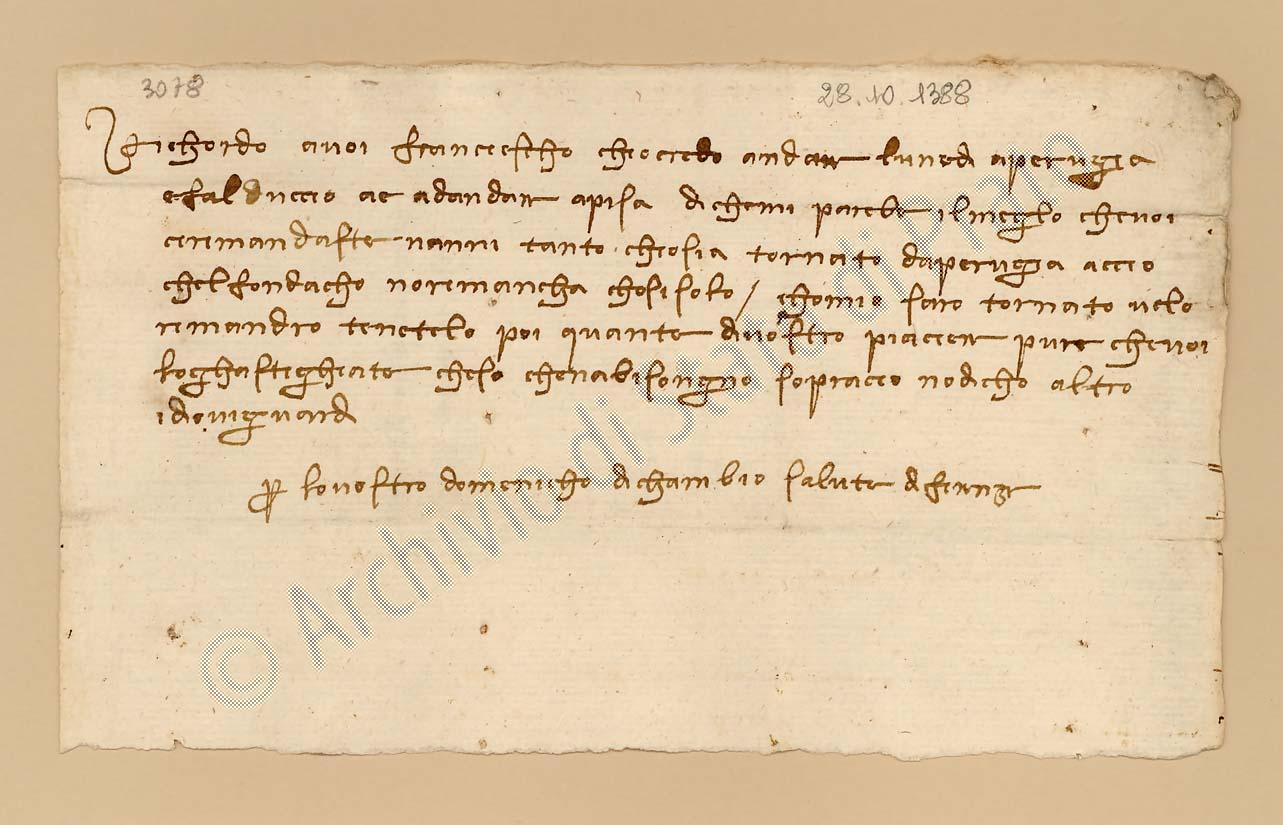 3078
28.10.1388
Richordo avoi franciescho cheocredo andar lunedi aperugia
efalduccio ae adandar apisa dichemi parebe ilmeglo chevoi
ceremandaste nanni tanto cheosia tornato daperugia accio
chelfondacho noremancha chosisolo / echomio saro tornato velo
remandro tenetelo poi quante divostro piacier pure chevoi
loghastighiate cheso chenabisongno sopraccio nodicho altro
idiovighuardi
per lovostro domenicho dichambio salute
© Archivio di Stato di Prato